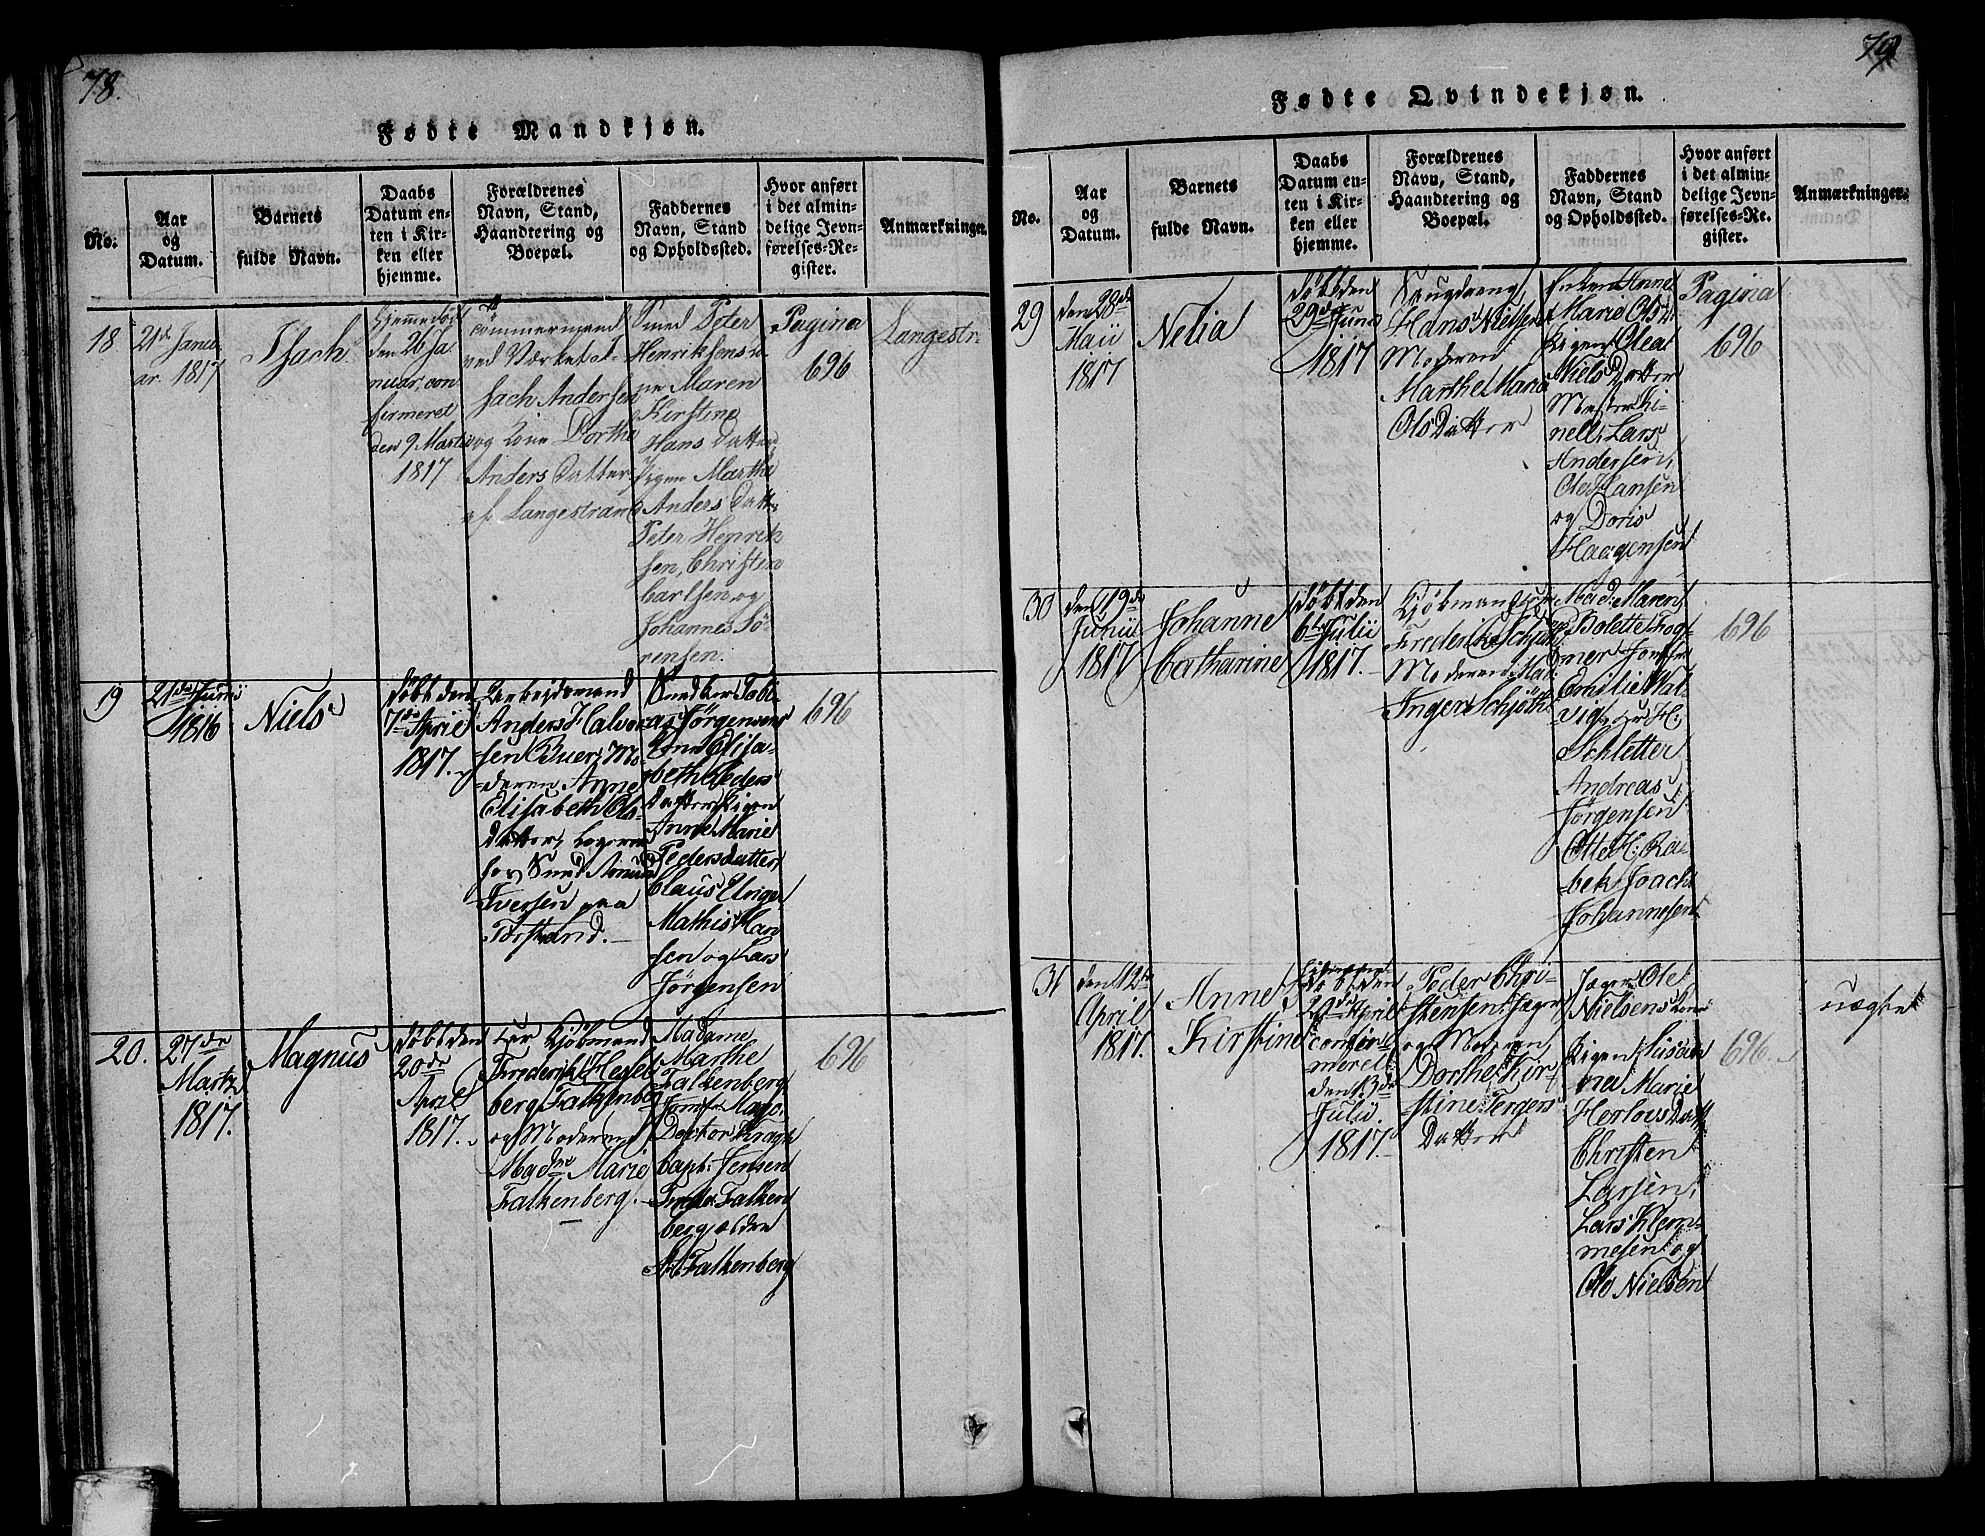 78.
Fødte Mandkjøn.
No.
Aar
og
Datum.
Barnets
fulde Navn.
Daabs
Datum en-
ten i Kir-
ken eller
hjemme.
Forældrenes
Navn, Stand,
Haandtering og
Boepæl.
Faddernes
Navn, Stand
og Opholdssted.
Hvor anført
i det almin-
delige Jevn-
førelses-Re-
gister.
Anmærkninger.
18.
21de Janu-
ar. 1817
Isach
Hjemmedøbt
den 26 Ja-
nuar, con-
firmeret
den 9 Martii
1817
Tømmermand
ved Værket I-
sach Andersen
og Kone Dorthe
Anders Datter
af Langestrand
Smed Peter
Henriksens Ko-
ne Maren
Kirstine
Hans Datter,
Pigen Marthe
Anders Datt.
Peter Henrik-
sen, Christen
Carlsen og
Johannes Sö-
rensen.
Pagina
696
Langestr.
19
21de Junii
1816
Niels
Döbt den
7de April
1817.
Arbejdsmand
Anders Halvor-
sen Buer, Mo-
deren Anne
Elisabeth Ols-
datter, Logerer
hos Smed Amund
Iversen paa
Torstrand.
Snedker Tobi-
as Jörgensens
Kone Elisa-
beth Peders
Datter Pigen
Anne Marie
Pedersdatter,
Claus Unger
Mathis Han-
sen og Lars
Jörgensen
696
20.
27de
Martz
1817.
Magnus
Döbt den
20de
April
1817.
Herr Kjöbmand
Frederik Hesel-
berg Falkenberg
og Moderen
Madme Marie
Falkenberg.
Madame
Marthe
Falkenberg
Jomfr Mayo.
Doctor Kragh
Capt: Jensen
Fredr. Falken-
berg, ælden
A. Falkenberg
696
79
Fødte Qvindekjøn.
No.
Aar
og
Datum.
Barnets
fulde Navn.
Daabs
Datum en-
ten i Kir-
ken eller
hjemme.
Forældrenes
Navn, Stand,
Haandtering og
Boepæl.
Faddernes
Navn, Stand
og Opholdssted.
Hvor anført
i det almin-
delige Jevn-
førelses-Re-
gister.
Anmærkninger.
29
den 28de
Maii
1817
Nelia
Döbt den
29de Junii
1817
Saugdreng
Hans Nielsen
Moderen
Marthe Maria
Ols Datter
Enken Anne
Marie Olsd.
Pigen Olea
Niels Datter
Mester Ki-
nell, Lars
Andersen,
Ole Hansen
og Doris
Haagensen
Pagina
696
30
den 19de
Junii
1817
Johanne
Catharine
Döbt den
6te Julii
1817.
Kjöbmand Herr
Frederik Schjöth
Moderen Mad:
Inger Schjöth
Mad: Maren
Bolette Fog-
mer Jomfru
Emilie Mal-
vig, Hr H:
Schletter
Andreas
Jörgensen
Otte H: Ra-
bek, Joach:
Johannesen
696
31
den 12de
April
1817.
Anne
Kirstine
döbt den
29de April
confir-
meret
den 13de
Julii
1817.
Peder Chri-
stensen Jager
og Moderen
Dorthe Kir-
stine Jergens
Datter
Jagr: Ole
Nielsens Kone
Pigen Susan-
ne Marie
Herlovs Datt.
Christen
Larsen,
Lars Klem-
mesen og
Ole Nielsen
696.
uægte